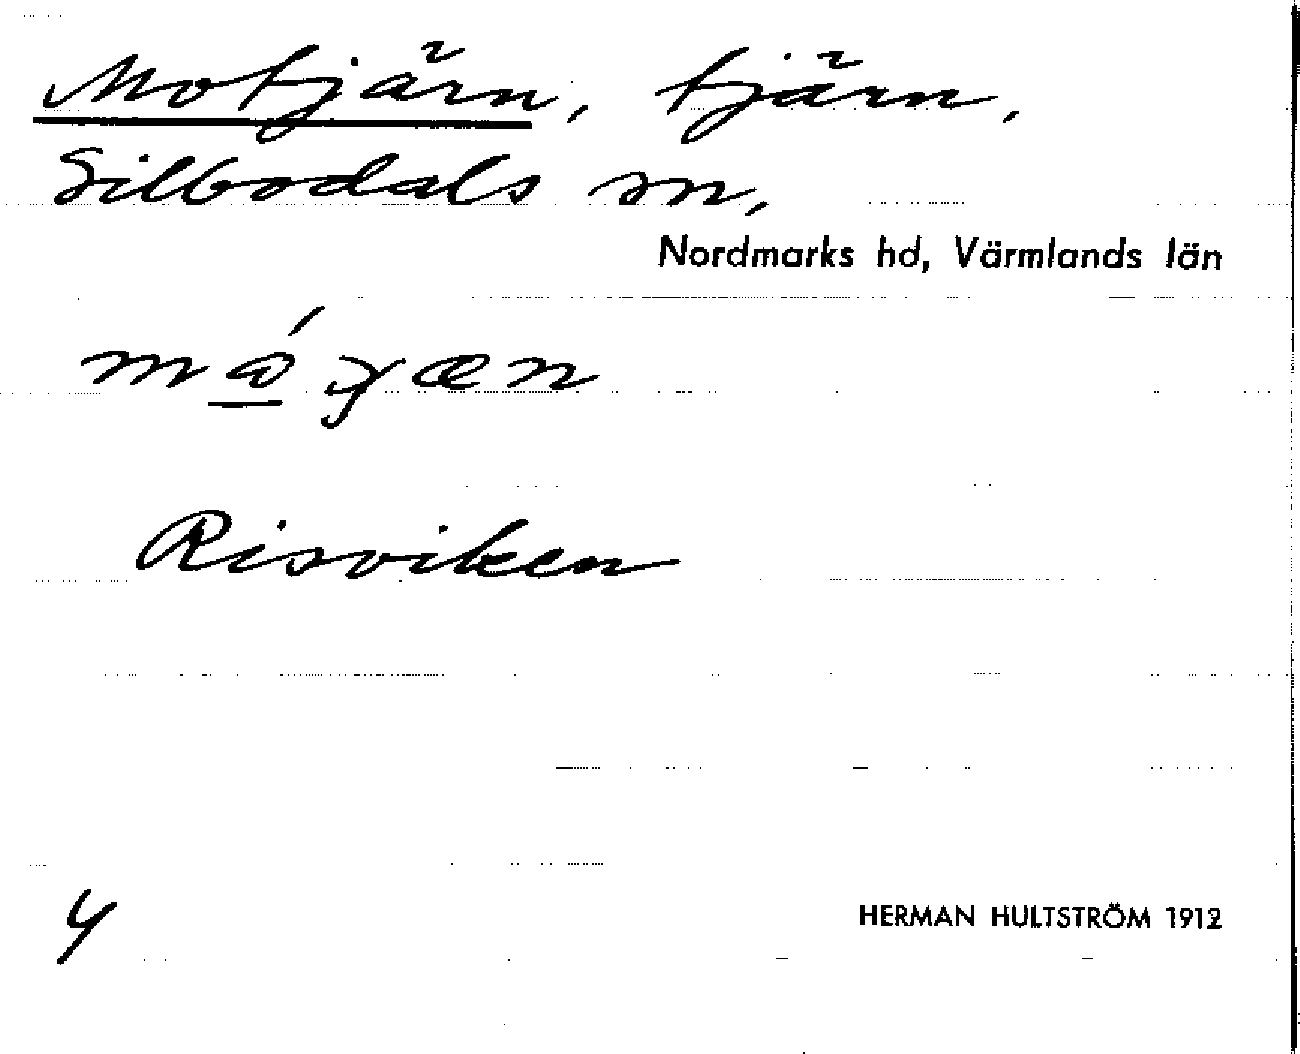 Motjärn, tjärn,
Silbodals sn,
Nordmarks hd, Värmlands län
Risviken
4
HERMAN HULTSTRÖM 1912